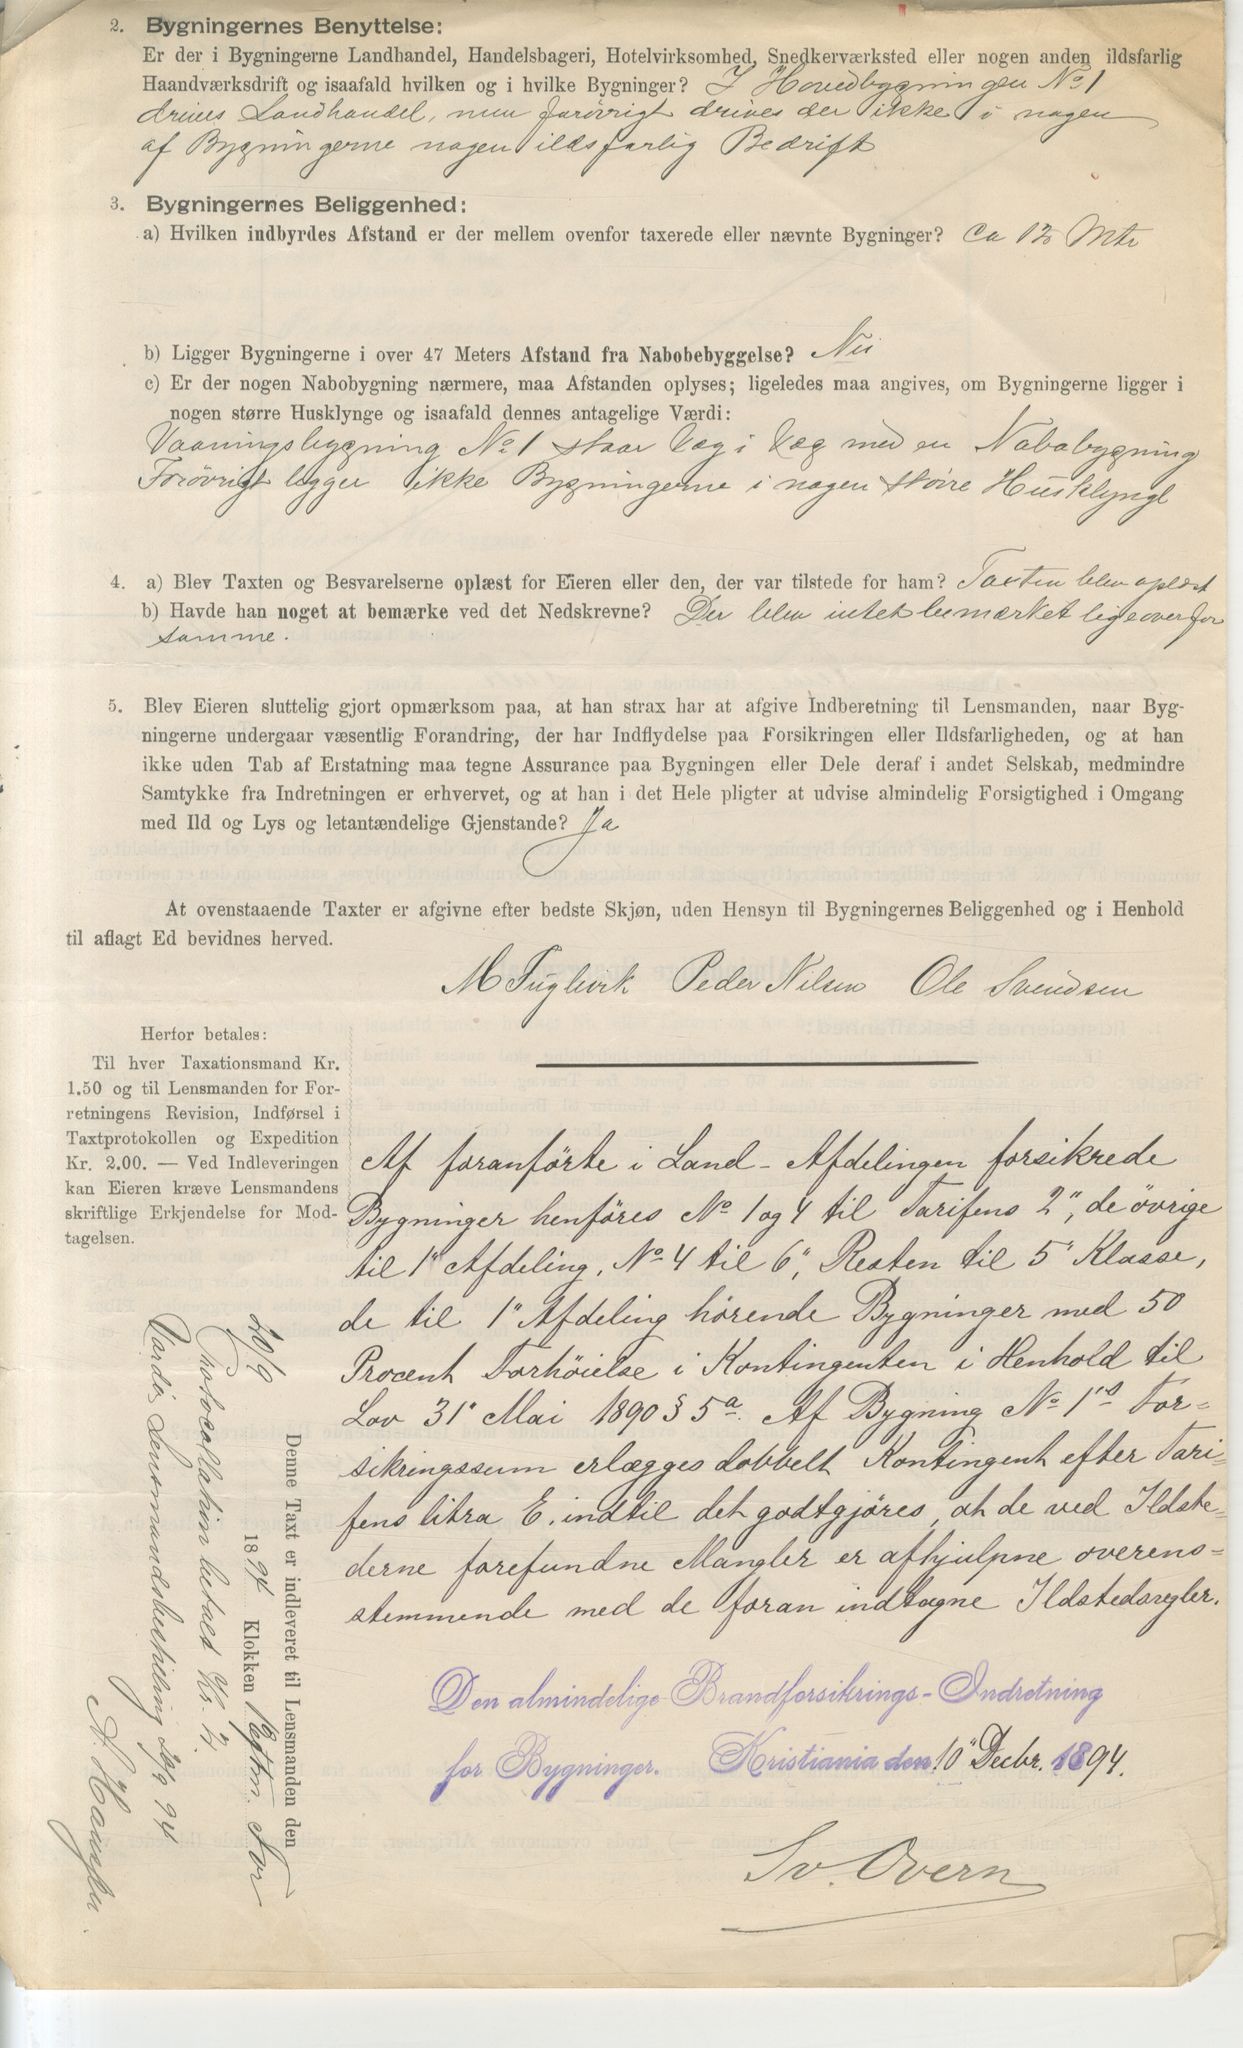 2. Bygningernes Benyttelse:
Er der i Bygningerne Landhandel, Handelsbageri, Hotelvirksomhed, Snedkerværksted eller nogen anden ildsfarlig
Haandværksdrift og isaafald hvilken og i hvilke Bygninger? I Hovedbygningen No 1
drives Landhandel, men forøvrigt drives der ikke i nogen
af Bygningerne nogen ildsfarlig Bedrift
3. Bygningernes Beliggenhed:
a) Hvilken indbyrdes Afstand er der mellem ovenfor taxerede eller nævnte Bygninger? Ca Mtr
b) Ligger Bygningerne i over 47 Meters Afstand fra Nabobebyggelse? Nei
c) Er der nogen Nabobygning nærmere, maa Afstanden oplyses; ligeledes maa angives, om Bygningerne ligger i
nogen større Husklynge og isaafald dennes antagelige Værdi:
Vaaningsbygning No 1 staar Væg i Væg med en Nabobygning
Forövrigt ligger ikke Bygningerne i nogen støire Husklynge
4. a) Blev Taxten og Besvarelserne oplæst for Eieren eller den, der var tilstede for ham? Taxten blev oplæst
b) Havde han noget at bemærke ved det Nedskrevne? Der blev intet bemærket ligeoverfor
samme.
5. Blev Eieren sluttelig gjort opmærksom paa, at han strax har at afgive Indberetning til Lensmanden, naar Byg-
ningerne undergaar væsentlig Forandring, der har Indflydelse paa Forsikringen eller Ildsfarligheden, og at han
ikke uden Tab af Erstatning maa tegne Assurance paa Bygningen eller Dele deraf i andet Selskab, medmindre
Samtykke fra Indretningen er erhvervet, og at han i det Hele pligter at udvise almindelig Forsigtighed i Omgang
med Ild og Lys og letantændelige Gjenstande? Ja
At ovenstaaende Taxter er afgivne efter bedste Skjøn, uden Hensyn til Bygningernes Beliggenhed og i Henhold
til aflagt Ed bevidnes herved.
M Fuglevik Peder Nilsen Ole Svendsen
Herfor betales:
Til hver Taxationsmand Kr.
1.50 og til Lensmanden for For-
retningens Revision, Indførsel i
Taxtprotokollen og Expedition
Kr. 2.00. — Ved Indleveringen
kan Eieren kræve Lensmandens
skriftlige Erkjendelse for Mod-
tagelsen.
Af foranförte i Land-Afdelingen forsikrede
Bygninger henföres No 1 og 4 til Tarifens 2", de övrige
til 1" Afdeling, No 4 til 6", Resten til 5" Klasse,
de til 1" Afdeling hörende Bygninger med 50
Procent Forhöielse i Kontingenten i Henhold til
Lov 31" Mai 1890 § 5a. Af Bygning No 1's For-
sikringssum erlægges dobbelt Kontingent efter Tari-
fens litra E, indtil det godtgjöres, at de ved Ildste-
derne forefundne Mangler er afhjulpne overens-
stemmende med de foran indtagne Ildstedsregler.
Den almindelige Brandforsikrings-Indretning
for Bygninger. Kristiania den 10" Decbr. 1894.
Sv. Overn
Denne Taxt er indleveret til Lensmanden den
20/9 1894 Klokken For
betalt Kr. 2.
Vardø Lensmandsbestilling 20/9 94